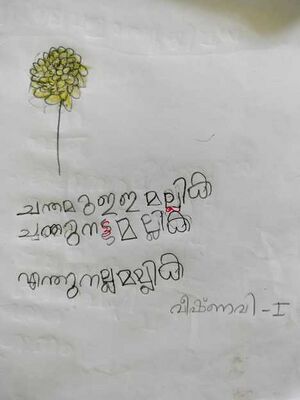 ചന്തമുള്ള മല്ലിക
ചന്തുനട്ട മല്ലിക
എന്തുനല്ലമല്ലിക
വീഷ്ണവി - I